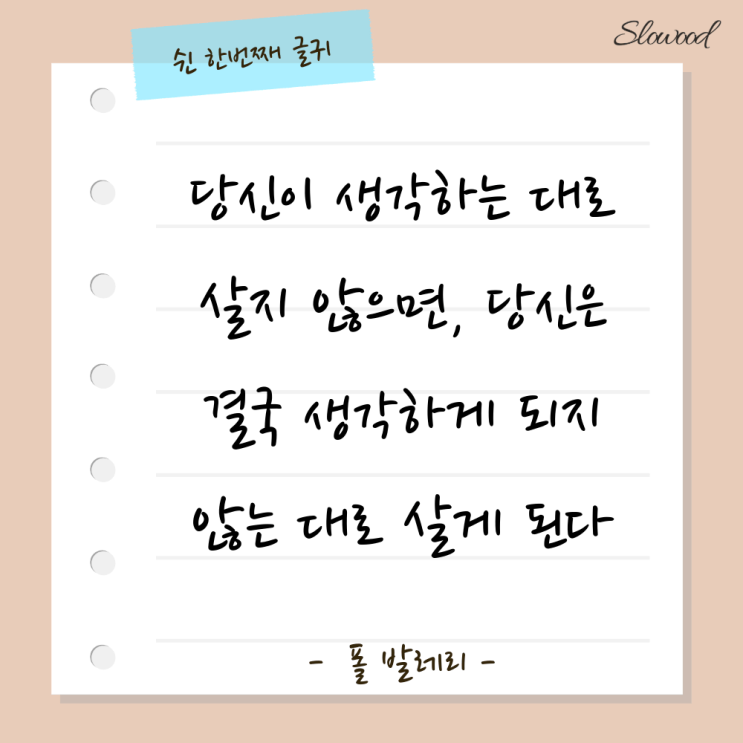 Slowood
쉰 한번째 글귀
당신이 생각하는 대로
살지 않으면, 당신은
결국 생각하게 되지
않는 대로 살게 된다
- 폴 발레리 -